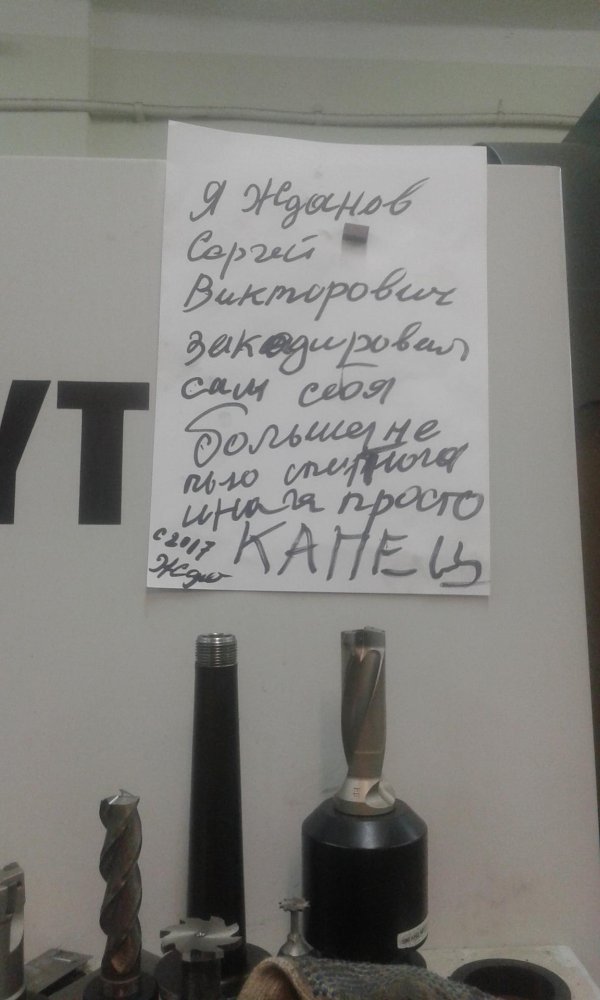 Я Жданов
Сергей
Викторович
закодировал
сам себя
больше не
пью спиртного
иначе просто
КАПЕЦ
с 2017
YT